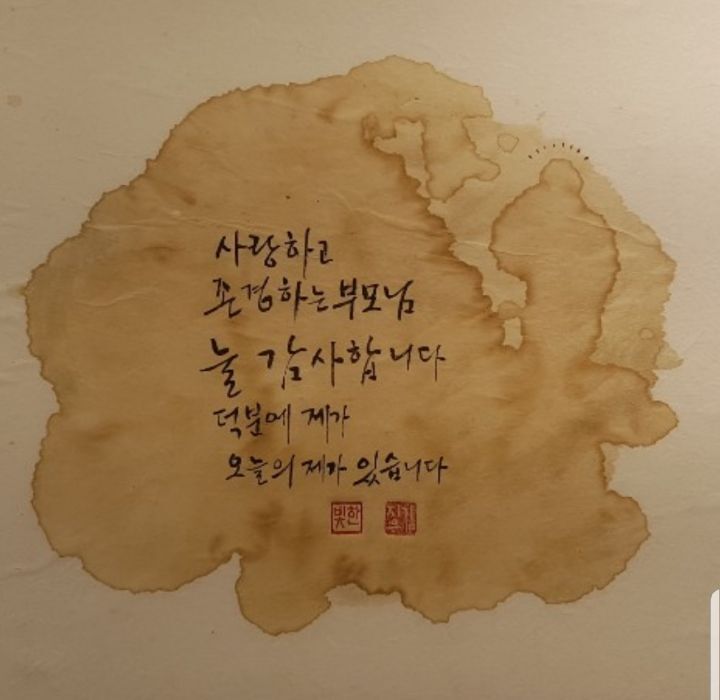 사랑하고
존경하는 부모님
늘 감사합니다
덕분에 제가
오늘의 제가 있습니다